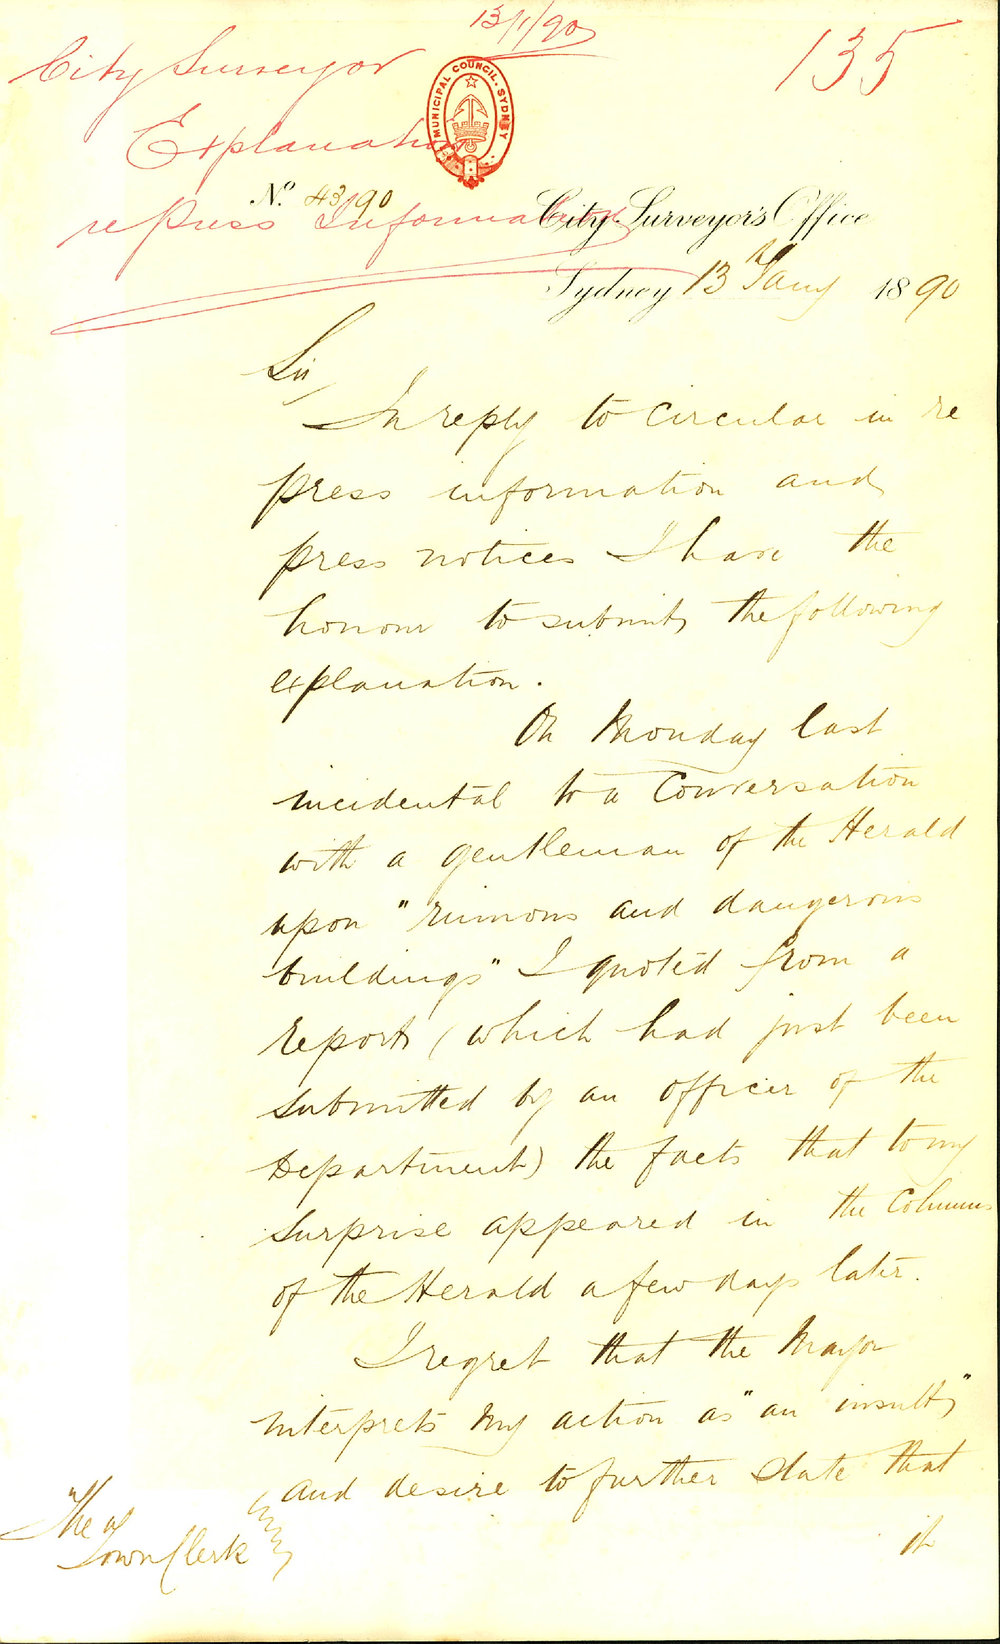 13/1/90
135
City Surveyor
Explanation
re Press Information
MUNICIPAL COUNCIL. SYDNEY
No. 43/90
City Surveyor's Office
Sydney 13 Jany 1890
Sir,
In reply to circular in re
press information and
press notices I have the
honour to submit the following
explanation.
On Monday last
incidental to a Conversation
with a gentleman of the Herald
upon "ruinous and dangerous
buildings" I quoted from a
report (which had just been
submitted by an officer of the
Department) the facts that to my
surprise appeared in the Columns
of the Herald a few days later.
I regret that the Mayor
interprets my action as "an insult"
and desire to further state that
it
The
Town Clerk